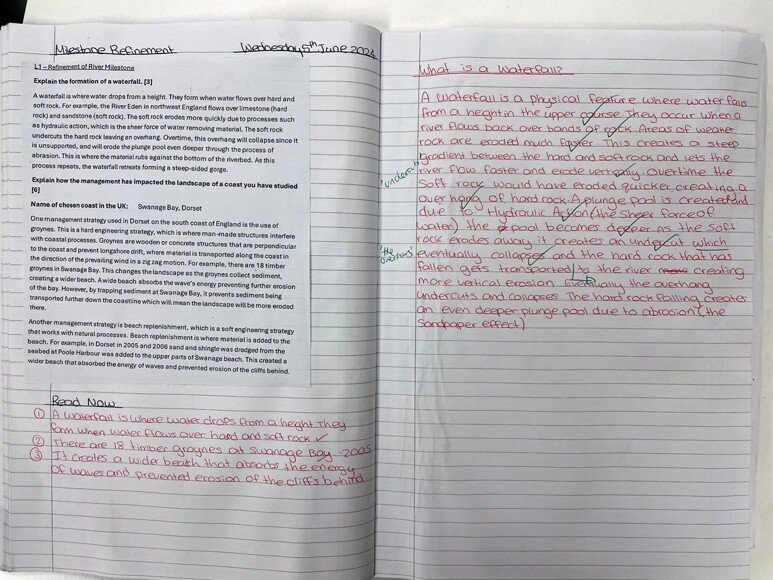 Milestone Refinement Wednesday 5th June 2024
L1 – Refinement of River Milestone
Explain the formation of a waterfall. [3]
A waterfall is where water drops from a height. They form when water flows over hard and
soft rock. For example, the River Eden in northwest England flows over limestone (hard
rock) and sandstone (soft rock). The soft rock erodes more quickly due to processes such
as hydraulic action, which is the sheer force of water removing material. The soft rock
undercuts the hard rock leaving an overhang. Overtime, this overhang will collapse since it
is unsupported, and will erode the plunge pool even deeper through the process of
abrasion. This is where the material rubs against the bottom of the riverbed. As this
process repeats, the waterfall retreats forming a steep-sided gorge.
Explain how the management has impacted the landscape of a coast you have studied
[6]
Name of chosen coast in the UK: Swanage Bay, Dorset
One management strategy used in Dorset on the south coast of England is the use of
groynes. This is a hard engineering strategy, which is where man-made structures interfere
with coastal processes. Groynes are wooden or concrete structures that are perpendicular
to the coast and prevent longshore drift, where material is transported along the coast in
the direction of the prevailing wind in a zig zag motion. For example, there are 18 timber
groynes in Swanage Bay. This changes the landscape as the groynes collect sediment,
creating a wider beach. A wide beach absorbs the wave's energy preventing further erosion
of the bay. However, by trapping sediment at Swanage Bay, it prevents sediment being
transported further down the coastline which will mean the landscape will be more eroded
there.
Another management strategy is beach replenishment, which is a soft engineering strategy
that works with natural processes. Beach replenishment is where material is added to the
beach. For example, in Dorset in 2005 and 2006 sand and shingle was dredged from the
seabed at Poole Harbour was added to the upper parts of Swanage beach. This created a
wider beach that absorbed the energy of waves and prevented erosion of the cliffs behind.
Read Now
① A waterfall is where water drops from a height They
form when water flows over hard and soft rock ✓
② There are 18 timber groynes at Swanage Bay -2005
③ It creates a wider beach that absorbs the energy
of waves and prevented erosion of the cliffs behind
What is a Waterfall?
A waterfall is a physical feature where water falls
from a height in the upper course. They occur when a
river flows back over bands of rock. Areas of weaker
rock are eroded much faster. This creates a steep
gradient between the hard and soft rock and lets the
river flow faster and erode vertically. Overtime the
Soft rock would have eroded quicker creating a
over hang of hard rock. A plunge pool is created and
due to Hydraulic Action (the sheer force of
water) the pool becomes deeper. as the soft
rock erodes away it creates an undercut which
eventually collapses and the hard rock that has
fallen gets transported to the river creating
more vertical erosion Eventually the overhang
undercuts and collapses. The hard rock falling creates
an even deeper plunge pool due to abrasion (the
Sandpaper effect)
'undercut
'the
overhang'